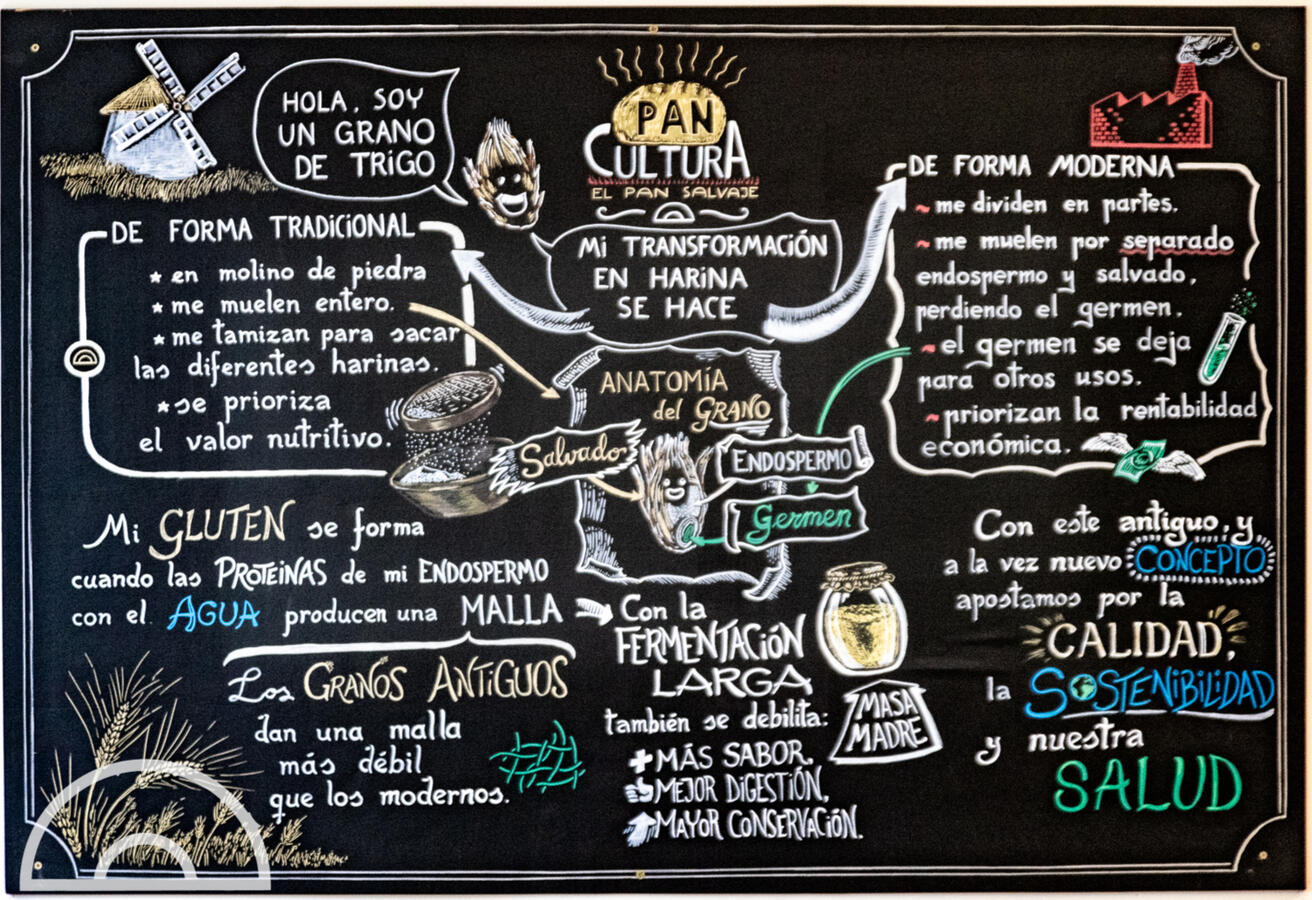 HOLA, SOY
UN GRANO
DE TRIGO
PAN
CULTURA
EL PAN SALVAJE
MI TRANSFORMACIÓN
EN HARINA
SE HACE
DE FORMA TRADICIONAL
* en molino de piedra
* me muelen entero.
* me tamizan para sacar
las diferentes harinas.
* se prioriza
el valor nutritivo.
DE FORMA MODERNA
~ me dividen en partes.
~ me muelen por separado
endospermo y salvado,
perdiendo el germen.
~ el germen se deja
para otros usos.
~ priorizan la rentabilidad
económica.
ANATOMÍA
del GRANO
Salvado
ENDOSPERMO
Germen
Mi GLUTEN se forma
cuando las PROTEINAS de mi ENDOSPERMO
con el AGUA producen una MALLA
Los GRANOS ANTIGUOS
dan una malla
más débil
que los modernos.
Con la
FERMENTACIÓN
LARGA
también se debilita:
+ MÁS SABOR,
MEJOR DIGESTIÓN,
MAYOR CONSERVACIÓN.
MASA
MADRE
Con este antiguo, y
a la vez nuevo CONCEPTO
apostamos por la
CALIDAD,
la SOSTENIBILIDAD
y nuestra
SALUD